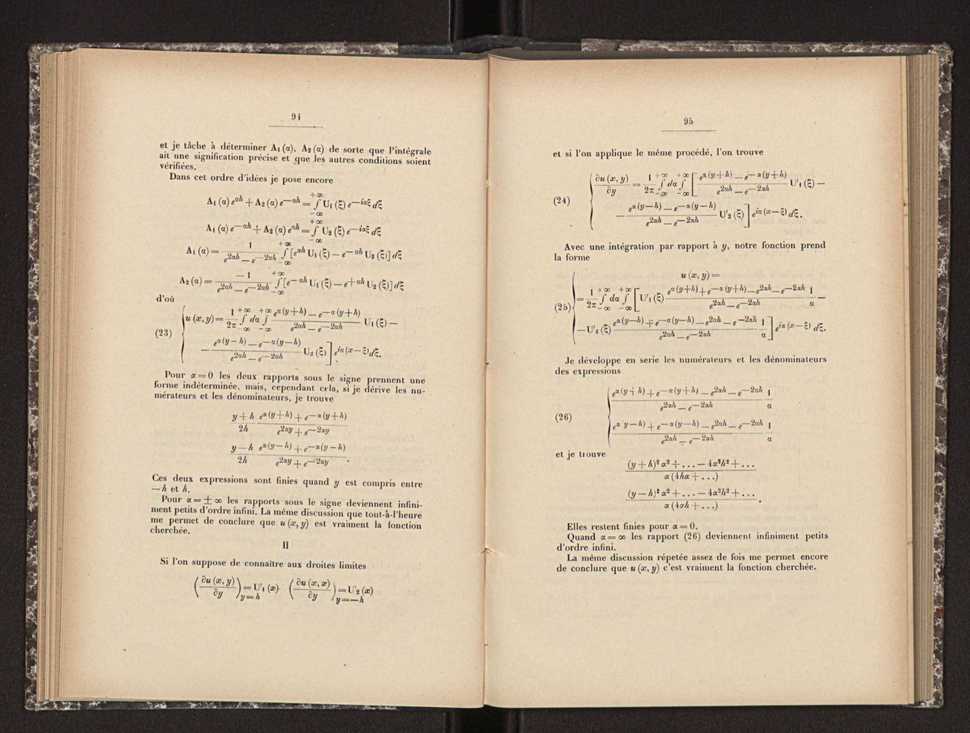 94
et je tâche à déterminer A₁ (α), A₂ (α) de sorte que l'intégrale
ait une signification précise et que les autres conditions soient
vérifiées.
Dans cet ordre d'idées je pose encore
A₁ (α) e^{αh} + A₂ (α) e^{—αh} = ∫_{—∞}^{+∞} U₁ (ξ) e^{—iαξ} dξ
A₁ (α) e^{—αh} + A₂ (α) e^{αh} = ∫_{—∞}^{+∞} U₂ (ξ) e^{—iαξ} dξ
A₁ (α) = 1/(e^{2αh} — e^{—2αh}) ∫_{—∞}^{+∞} [e^{αh} U₁ (ξ) — e^{—αh} U₂ (ξ)] dξ
A₂ (α) = —1/(e^{2αh} — e^{—2αh}) ∫_{—∞}^{+∞} [e^{—αh} U₁ (ξ) — e^{+αh} U₂ (ξ)] dξ
d'où
(23) { u (x, y) = 1/2π ∫_{—∞}^{+∞} dα ∫_{—∞}^{+∞} (e^{α(y+h)} — e^{—α(y+h)})/(e^{2αh} — e^{—2αh}) U₁ (ξ) —
— (e^{α(y—h)} — e^{—α(y—h)})/(e^{2αh} — e^{—2αh}) U₂ (ξ) ] e^{iα(x—ξ)} dξ.
Pour α = 0 les deux rapports sous le signe prennent une
forme indéterminée, mais, cependant cela, si je dérive les nu-
mérateurs et les dénominateurs, je trouve
(y + h)/2h (e^{α(y+h)} + e^{—α(y+h)})/(e^{2αy} + e^{—2αy})
(y — h)/2h (e^{α(y—h)} + e^{—α(y—h)})/(e^{2αy} + e^{—2αy}) .
Ces deux expressions sont finies quand y est compris entre
— h et h.
Pour α = ± ∞ les rapports sous le signe deviennent infini-
ment petits d'ordre infini. La même discussion que tout-à-l'heure
me permet de conclure que u (x, y) est vraiment la fonction
cherchée.
II
Si l'on suppose de connaître aux droites limites
(∂u (x, y)/∂y)_{y = h} = U'₁ (x) (∂u (x, x)/∂y)_{y = —h} = U'₂ (x)
95
et si l'on applique le même procédé, l'on trouve
(24) { ∂u (x, y)/∂y = 1/2π ∫_{—∞}^{+∞} dα ∫_{—∞}^{+∞} [ (e^{α(y+h)} — e^{—α(y+h)})/(e^{2αh} — e^{—2αh}) U'₁ (ξ) —
— (e^{α(y—h)} — e^{—α(y—h)})/(e^{2αh} — e^{—2αh}) U'₂ (ξ) ] e^{iα(x—ξ)} dξ.
Avec une intégration par rapport à y, notre fonction prend
la forme
u (x, y) =
(25) { = 1/2π ∫_{—∞}^{+∞} dα ∫_{—∞}^{+∞} [ U'₁ (ξ) (e^{α(y+h)} + e^{—α(y+h)} — e^{2αh} — e^{—2αh})/(e^{2αh} — e^{—2αh}) 1/α —
— U'₂ (ξ) (e^{α(y—h)} + e^{—α(y—h)} — e^{2αh} — e^{—2αh})/(e^{2αh} — e^{—2αh}) 1/α ] e^{iα(x—ξ)} dξ.
Je développe en serie les numérateurs et les dénominateurs
des expressions
(26) { (e^{α(y+h)} + e^{—α(y+h)} — e^{2αh} — e^{—2αh})/(e^{2αh} — e^{—2αh}) 1/α
(e^{α y—h)} + e^{—α(y—h)} — e^{2αh} — e^{—2αh})/(e^{2αh} — e^{—2αh}) 1/α
et je trouve
((y + h)² α² + ... — 4α²h² + ...)/(α (4hα + ...))
((y — h)² α² + ... — 4α²h² + ...)/(α (4αh + ...)) .
Elles restent finies pour α = 0.
Quand α = ∞ les rapport (26) deviennent infiniment petits
d'ordre infini.
La même discussion répetée assez de fois me permet encore
de conclure que u (x, y) c'est vraiment la fonction cherchée.